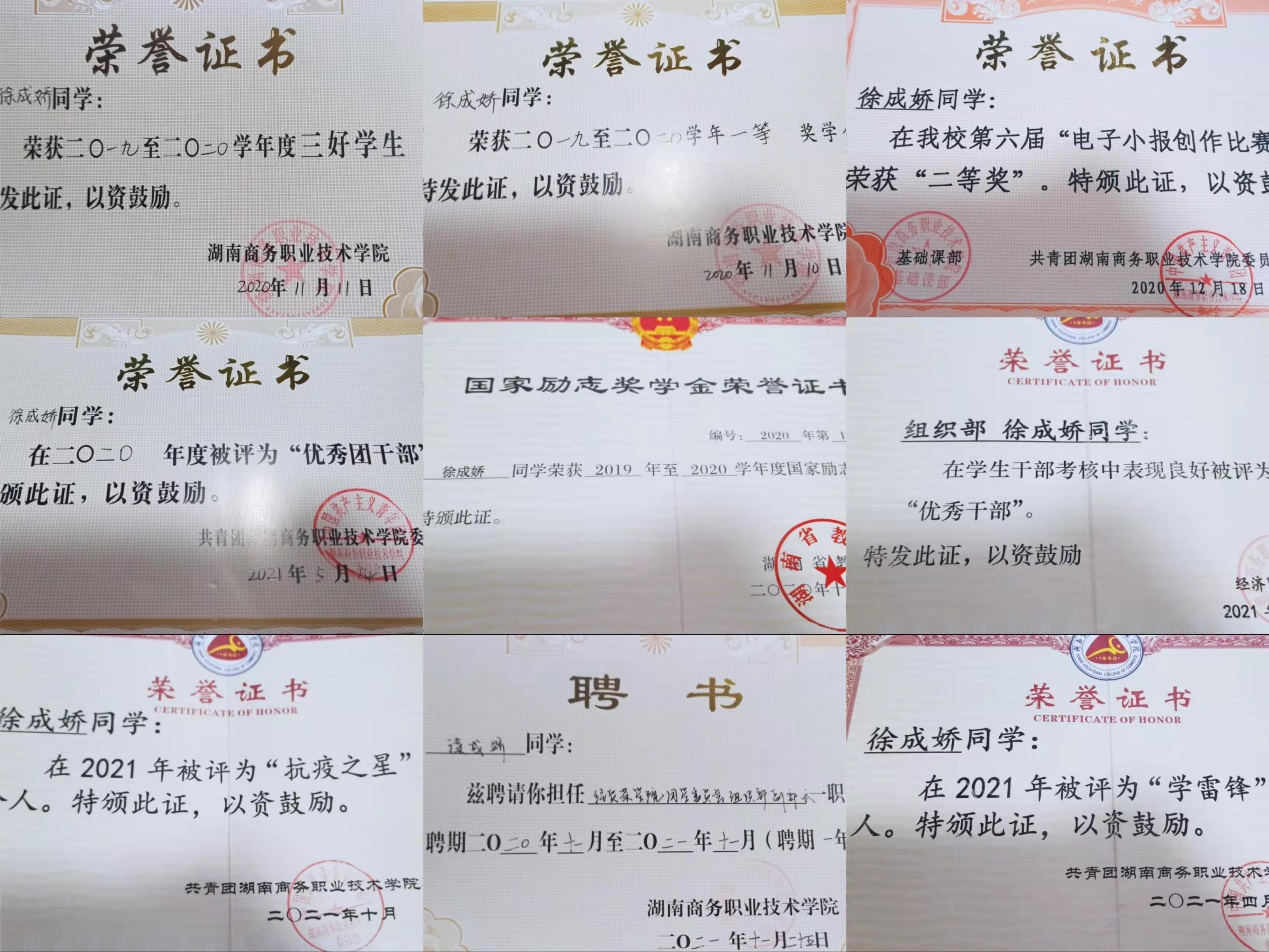 荣誉证书
徐成娇同学：
荣获二〇一九至二〇二〇学年度三好学生
发此证，以资鼓励。
湖南商务职业技术学院
2020年11月11日
荣誉证书
徐成娇同学：
荣获二〇一九至二〇二〇学年一等 奖学
特发此证，以资鼓励。
湖南商务职业技术学院
2020年11月10日
荣誉证书
徐成娇同学：
在我校第六届“电子小报创作比赛
荣获“二等奖”。特颁此证，以资
基础课部
共青团湖南商务职业技术学院委员
2020年12月18日
荣誉证书
徐成娇同学：
在二〇二〇 年度被评为“优秀团干部”
颁此证，以资鼓励。
共青团 商务职业技术学院委
2021年5月 日
国家励志奖学金荣誉证书
编号： 2020 年第 1
徐成娇 同学荣获 2019 年至 2020 学年度国家励志
特颁此证。
湖 省教
二〇二〇年十
湖南省教
荣誉证书
CERTIFICATE OF HONOR
组织部 徐成娇同学：
在学生干部考核中表现良好被评为
“优秀干部”。
特发此证，以资鼓励
经济
2021
荣誉证书
CERTIFICATE OF HONOR
徐成娇同学：
在 2021 年被评为“抗疫之星”
个人。特颁此证，以资鼓励。
共青团湖南商务职业技术学院
二〇二一年十月
聘 书
同学：
兹聘请你担任 组织部 一职
聘期二〇二〇年十一月至二〇二一年十一月（聘期一年
湖南商务职业技术学院
二〇二一年十一月二十五日
荣誉证书
CERTIFICATE OF HONOR
徐成娇同学：
在 2021 年被评为“学雷锋”
人。特颁此证，以资鼓励。
共青团湖南商务职业技术
二〇二一年四月